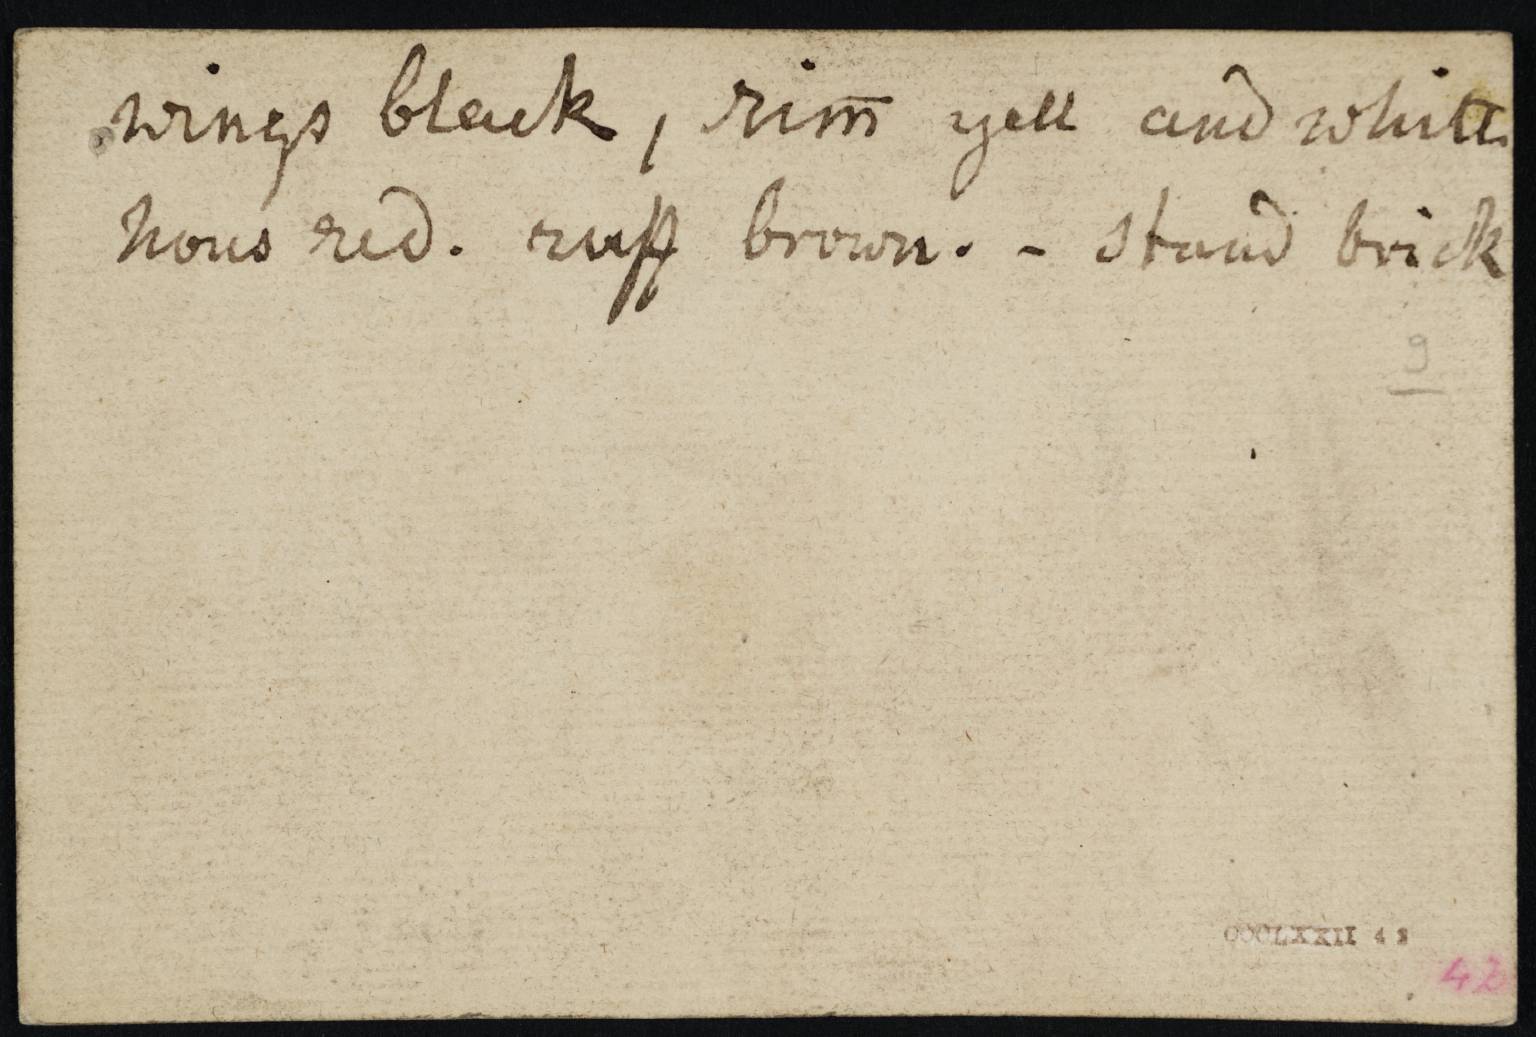 wings black, rim̅ yell and white
hous red. ruff brown. - stand brick
9
CCCLXXII 4 2
42